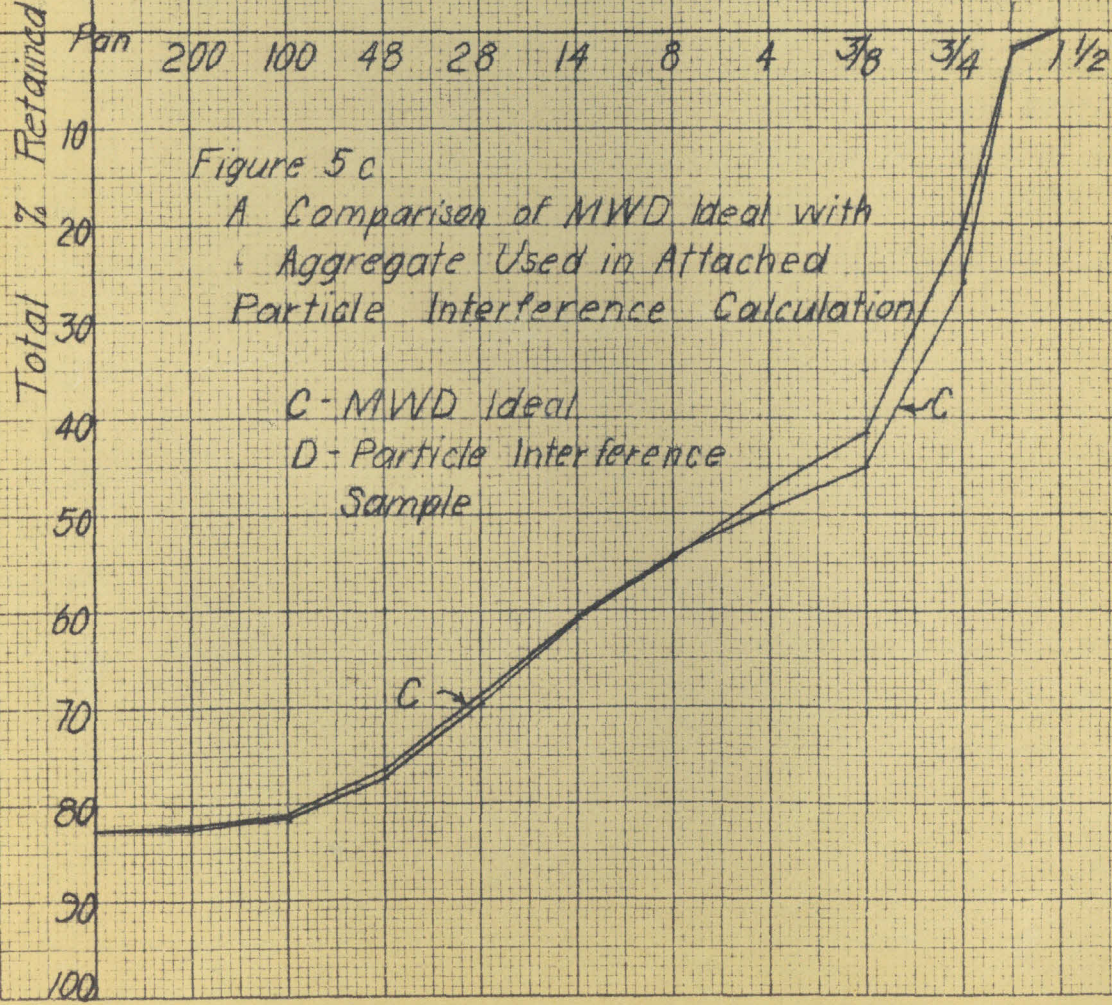 Total % Retained
Pan 200 100 48 28 14 8 4 3/8 3/4 1 1/2
10
20
30
40
50
60
70
80
90
100
Figure 5c
A Comparison of MWD Ideal with
Aggregate Used in Attached
Particle Interference Calculation
C - MWD Ideal
D - Particle Interference
Sample
C
C